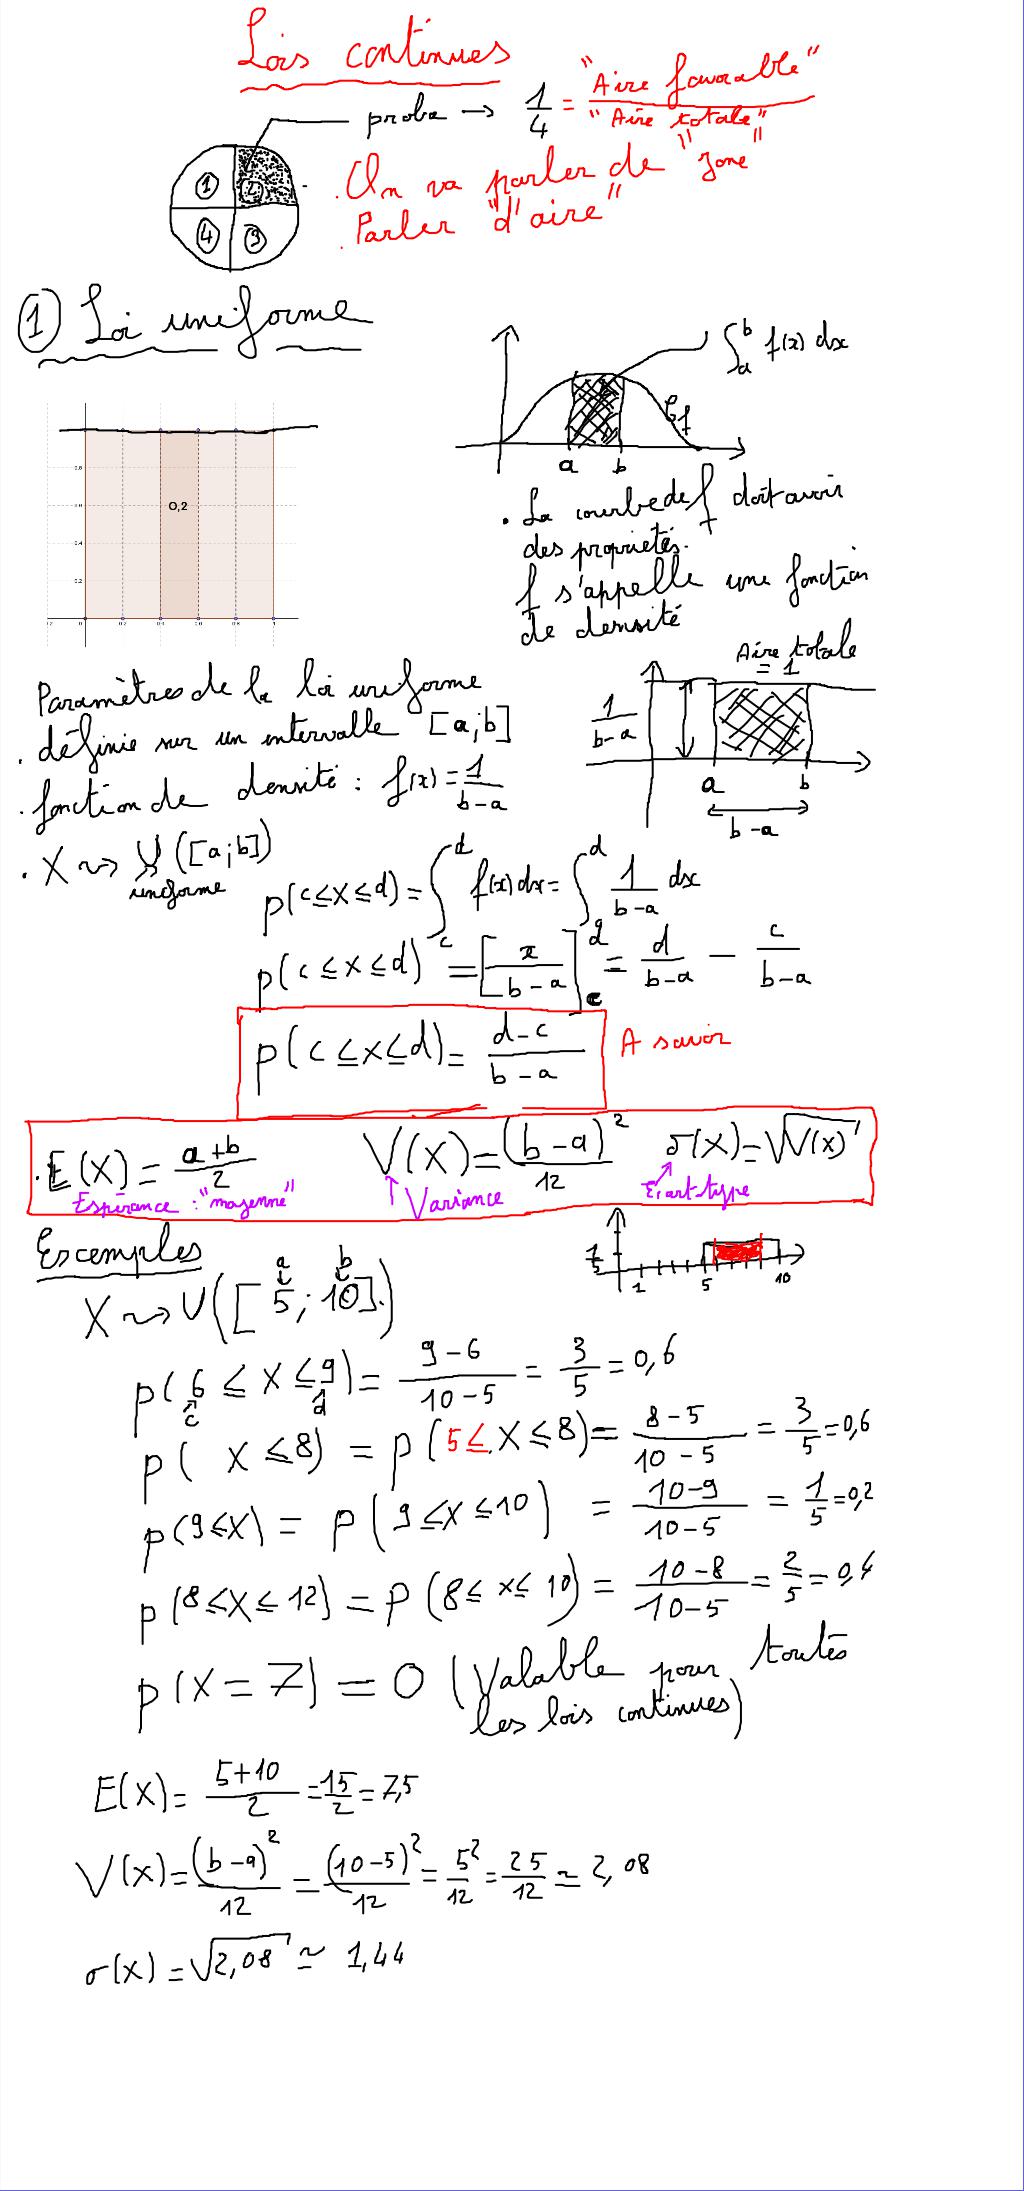 Lois continues
proba → 1/4 = "Aire favorable" / "Aire totale"
1 2
4 3
. On va parler de "zone"
. Parler "d'aire"
① Loi uniforme
∫_a^b f(x) dx
Cf
a b
0,8
0,6
0,4
0,2
-0,2 0 0,2 0,4 0,6 0,8 1
0,2
. La courbe de f doit avoir
des propriétés.
f s'appelle une fonction
de densité
Aire totale
= 1
1/(b-a)
a b
b-a
Paramètres de la loi uniforme
. définie sur un intervalle [a;b]
. fonction de densité : f(x) = 1/(b-a)
. X ↝ U([a;b])
uniforme
p(c≤X≤d) = ∫_c^d f(x) dx = ∫_c^d 1/(b-a) dx
p(c≤X≤d) = [x/(b-a)]_c^d = d/(b-a) - c/(b-a)
p(c≤X≤d) = (d-c)/(b-a) A savoir
. E(X) = (a+b)/2 V(X) = (b-a)²/12 σ(X) = √V(X)
Espérance : "moyenne" Variance Ecart-type
Exemples
1/5
1 5 10
a b
X ↝ U([5;10])
p(6≤X≤9) = (9-6)/(10-5) = 3/5 = 0,6
c d
p(X≤8) = p(5≤X≤8) = (8-5)/(10-5) = 3/5 = 0,6
p(9≤X) = p(9≤X≤10) = (10-9)/(10-5) = 1/5 = 0,2
p(8≤X≤12) = p(8≤X≤10) = (10-8)/(10-5) = 2/5 = 0,4
p(X=7) = 0 (Valable pour toutes
les lois continues)
E(X) = (5+10)/2 = 15/2 = 7,5
V(X) = (b-a)²/12 = (10-5)²/12 = 5²/12 = 25/12 ≃ 2,08
σ(X) = √2,08 ≃ 1,44